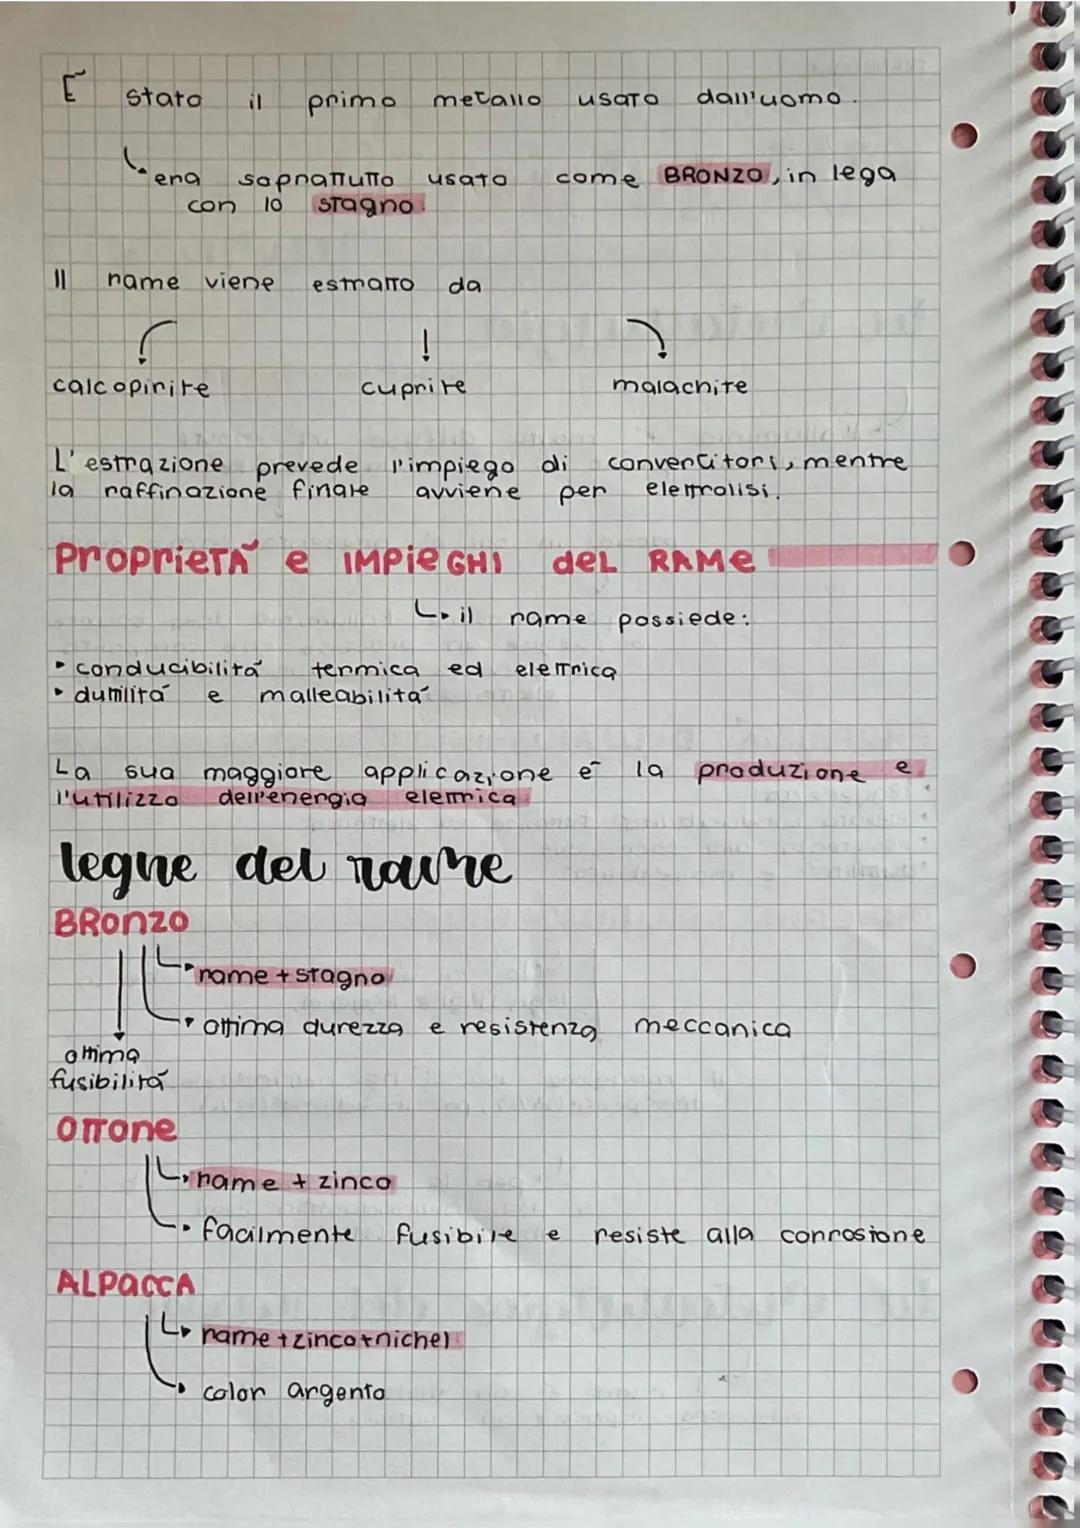 È stato il primo metallo usato dall'uomo.
era soprattutto usato come BRONZO, in lega
con lo stagno.
Il rame viene estratto da
calcopirite cuprite malachite
L'estrazione prevede l'impiego di convertitori, mentre
la raffinazione finale avviene per elettrolisi.
ProprieTÀ e IMPieGHI deL RAMe
il rame possiede:
• conducibilità termica ed elettrica
• duttilità e malleabilità
La sua maggiore applicazione è la produzione e
l'utilizzo dell'energia elettrica
leghe del rame
BRonzo
rame + stagno
ottima durezza e resistenza meccanica
ottima
fusibilità
OTTone
rame + zinco
facilmente fusibile e resiste alla corrosione
ALPaccA
rame + zinco + nichel
color argento